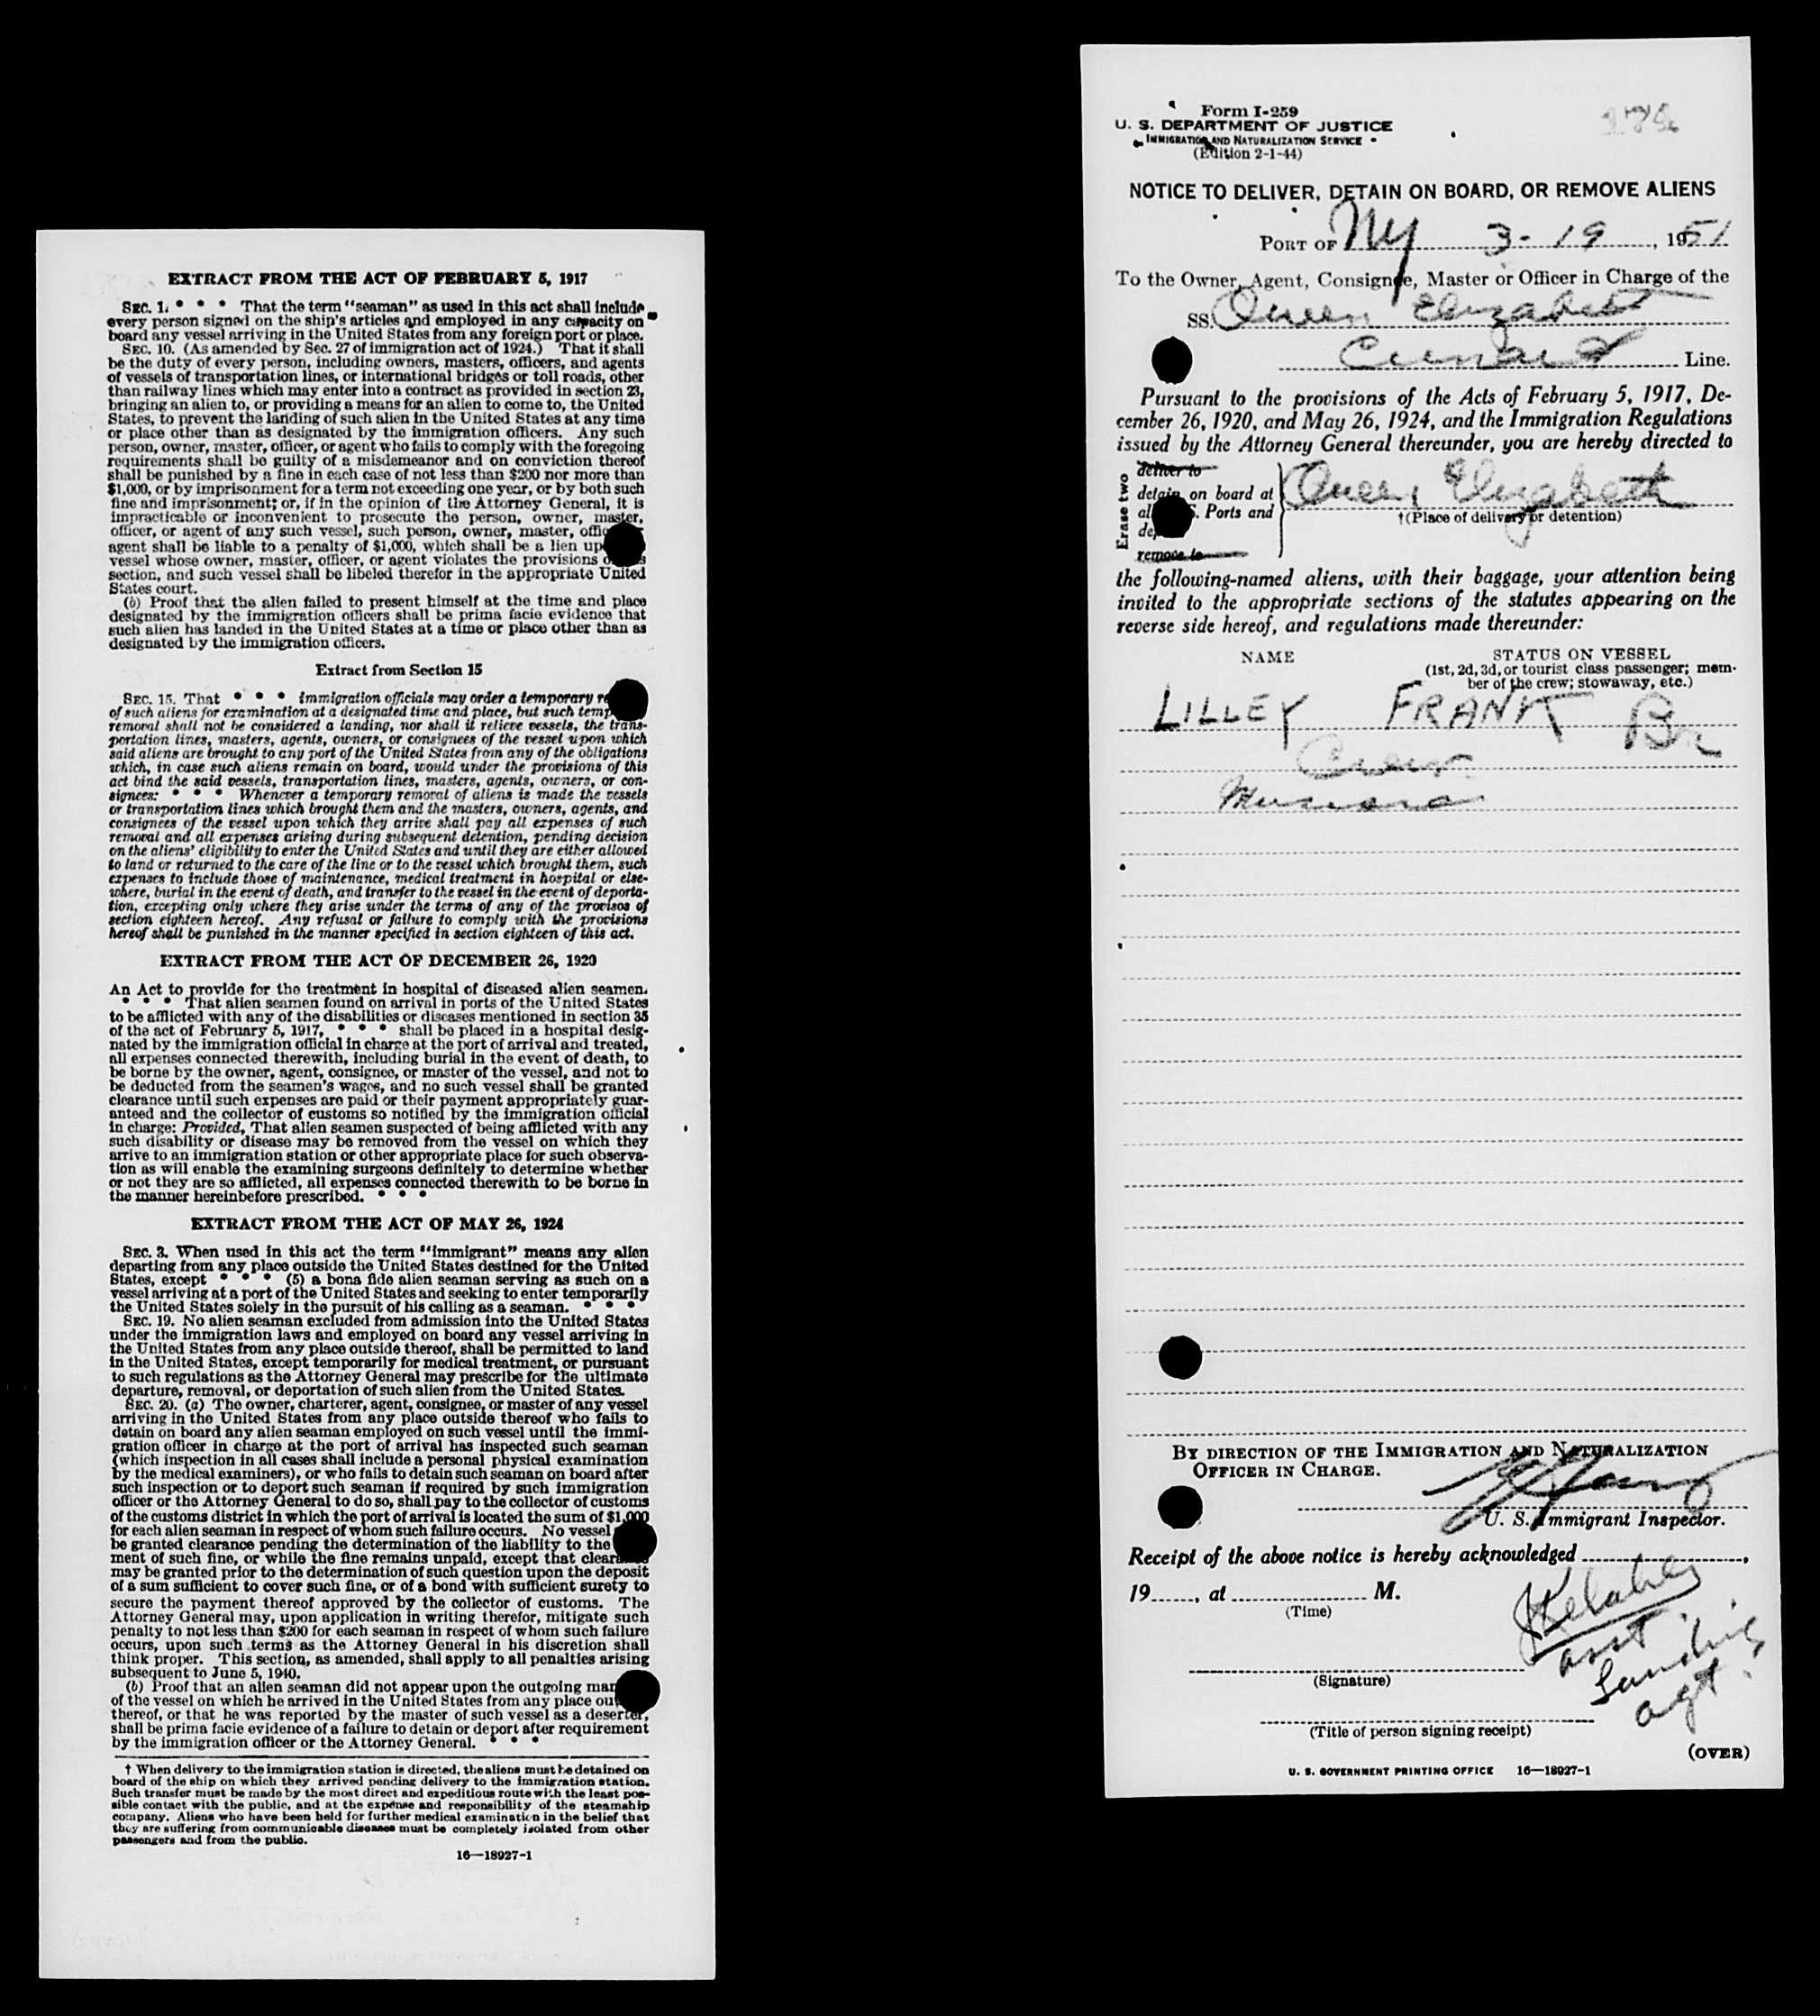 EXTRACT FROM THE ACT OF FEBRUARY 5, 1917
SEC. 1. * * * That the term "seaman" as used in this act shall include
every person signed on the ship's articles and employed in any capacity on
board any vessel arriving in the United States from any foreign port or place.
SEC. 10. (As amended by Sec. 27 of immigration act of 1924.) That it shall
be the duty of every person, including owners, masters, officers, and agents
of vessels of transportation lines, or international bridges or toll roads, other
than railway lines which may enter into a contract as provided in section 23,
bringing an alien to, or providing a means for an alien to come to, the United
States, to prevent the landing of such alien in the United States at any time
or place other than as designated by the immigration officers. Any such
person, owner, master, officer, or agent who fails to comply with the foregoing
requirements shall be guilty of a misdemeanor and on conviction thereof
shall be punished by a fine in each case of not less than $200 nor more than
$1,000, or by imprisonment for a term not exceeding one year, or by both such
fine and imprisonment; or, if in the opinion of the Attorney General, it is
impracticable or inconvenient to prosecute the person, owner, master,
officer, or agent of any such vessel, such person, owner, master, offic
agent shall be liable to a penalty of $1,000, which shall be a lien up
vessel whose owner, master, officer, or agent violates the provisions o
section, and such vessel shall be libeled therefor in the appropriate United
States court.
(b) Proof that the alien failed to present himself at the time and place
designated by the immigration officers shall be prima facie evidence that
such alien has landed in the United States at a time or place other than as
designated by the immigration officers.
Extract from Section 15
SEC. 15. That * * * immigration officials may order a temporary re
of such aliens for examination at a designated time and place, but such temp
removal shall not be considered a landing, nor shall it relieve vessels, the trans-
portation lines, masters, agents, owners, or consignees of the vessel upon which
said aliens are brought to any port of the United States from any of the obligations
which, in case such aliens remain on board, would under the provisions of this
act bind the said vessels, transportation lines, masters, agents, owners, or con-
signees: * * * Whenever a temporary removal of aliens is made the vessels
or transportation lines which brought them and the masters, owners, agents, and
consignees of the vessel upon which they arrive shall pay all expenses of such
removal and all expenses arising during subsequent detention, pending decision
on the aliens' eligibility to enter the United States and until they are either allowed
to land or returned to the care of the line or to the vessel which brought them, such
expenses to include those of maintenance, medical treatment in hospital or else-
where, burial in the event of death, and transfer to the vessel in the event of deporta-
tion, excepting only where they arise under the terms of any of the provisos of
section eighteen hereof. Any refusal or failure to comply with the provisions
hereof shall be punished in the manner specified in section eighteen of this act.
EXTRACT FROM THE ACT OF DECEMBER 26, 1920
An Act to provide for the treatment in hospital of diseased alien seamen.
* * * That alien seamen found on arrival in ports of the United States
to be afflicted with any of the disabilities or diseases mentioned in section 35
of the act of February 5, 1917, * * * shall be placed in a hospital desig-
nated by the immigration official in charge at the port of arrival and treated,
all expenses connected therewith, including burial in the event of death, to
be borne by the owner, agent, consignee, or master of the vessel, and not to
be deducted from the seamen's wages, and no such vessel shall be granted
clearance until such expenses are paid or their payment appropriately guar-
anteed and the collector of customs so notified by the immigration official
in charge: Provided, That alien seamen suspected of being afflicted with any
such disability or disease may be removed from the vessel on which they
arrive to an immigration station or other appropriate place for such observa-
tion as will enable the examining surgeons definitely to determine whether
or not they are so afflicted, all expenses connected therewith to be borne in
the manner hereinbefore prescribed. * * *
EXTRACT FROM THE ACT OF MAY 26, 1924
SEC. 3. When used in this act the term "immigrant" means any alien
departing from any place outside the United States destined for the United
States, except * * * (5) a bona fide alien seaman serving as such on a
vessel arriving at a port of the United States and seeking to enter temporarily
the United States solely in the pursuit of his calling as a seaman. * * *
SEC. 19. No alien seaman excluded from admission into the United States
under the immigration laws and employed on board any vessel arriving in
the United States from any place outside thereof, shall be permitted to land
in the United States, except temporarily for medical treatment, or pursuant
to such regulations as the Attorney General may prescribe for the ultimate
departure, removal, or deportation of such alien from the United States.
SEC. 20. (a) The owner, charterer, agent, consignee, or master of any vessel
arriving in the United States from any place outside thereof who fails to
detain on board any alien seaman employed on such vessel until the immi-
gration officer in charge at the port of arrival has inspected such seaman
(which inspection in all cases shall include a personal physical examination
by the medical examiners), or who fails to detain such seaman on board after
such inspection or to deport such seaman if required by such immigration
officer or the Attorney General to do so, shall pay to the collector of customs
of the customs district in which the port of arrival is located the sum of $1,000
for each alien seaman in respect of whom such failure occurs. No vessel
be granted clearance pending the determination of the liability to the
ment of such fine, or while the fine remains unpaid, except that clear
may be granted prior to the determination of such question upon the deposit
of a sum sufficient to cover such fine, or of a bond with sufficient surety to
secure the payment thereof approved by the collector of customs. The
Attorney General may, upon application in writing therefor, mitigate such
penalty to not less than $200 for each seaman in respect of whom such failure
occurs, upon such terms as the Attorney General in his discretion shall
think proper. This section, as amended, shall apply to all penalties arising
subsequent to June 5, 1940.
(b) Proof that an alien seaman did not appear upon the outgoing man
of the vessel on which he arrived in the United States from any place out
thereof, or that he was reported by the master of such vessel as a deserter,
shall be prima facie evidence of a failure to detain or deport after requirement
by the immigration officer or the Attorney General. * * *
† When delivery to the immigration station is directed, the aliens must be detained on
board of the ship on which they arrived pending delivery to the immigration station.
Such transfer must be made by the most direct and expeditious route with the least pos-
sible contact with the public, and at the expense and responsibility of the steamship
company. Aliens who have been held for further medical examination in the belief that
they are suffering from communicable diseases must be completely isolated from other
passengers and from the public.
16—18927-1
Form I-259
U. S. DEPARTMENT OF JUSTICE
IMMIGRATION AND NATURALIZATION SERVICE
(Edition 2-1-44)
174
NOTICE TO DELIVER, DETAIN ON BOARD, OR REMOVE ALIENS
PORT OF NY 3-19, 1951
To the Owner, Agent, Consignee, Master or Officer in Charge of the
SS. Queen Elizabeth
Cunard Line.
Pursuant to the provisions of the Acts of February 5, 1917, De-
cember 26, 1920, and May 26, 1924, and the Immigration Regulations
issued by the Attorney General thereunder, you are hereby directed to
Erase two
deliver to
detain on board at
al S. Ports and
de
remove to
Queen Elizabeth
†(Place of delivery or detention)
the following-named aliens, with their baggage, your attention being
invited to the appropriate sections of the statutes appearing on the
reverse side hereof, and regulations made thereunder:
NAME STATUS ON VESSEL
(1st, 2d, 3d, or tourist class passenger; mem-
ber of the crew; stowaway, etc.)
LILLEY FRANK Br
Crew
BY DIRECTION OF THE IMMIGRATION AND NATURALIZATION
OFFICER IN CHARGE.
U. S. Immigrant Inspector.
Receipt of the above notice is hereby acknowledged ,
19 , at M.
(Time)
asst
Landing
agt.
(Signature)
(Title of person signing receipt)
(OVER)
U. S. GOVERNMENT PRINTING OFFICE 16—18927-1